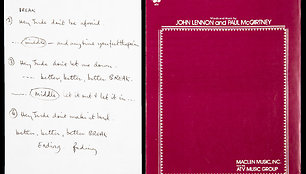 BREAK
Hey Jude don't be afraid.
middle - and anytime you feel the pain
Hey Jude don't let me down.
better, better, better BREAK.
middle it out & let it in
④ Hey Jude don't make it bad.
better, better, better BREAK
Ending fading
Words and Music by
JOHN LENNON and PAUL McCARTNEY
MACLEN MUSIC, INC.
ATV MUSIC GROUP